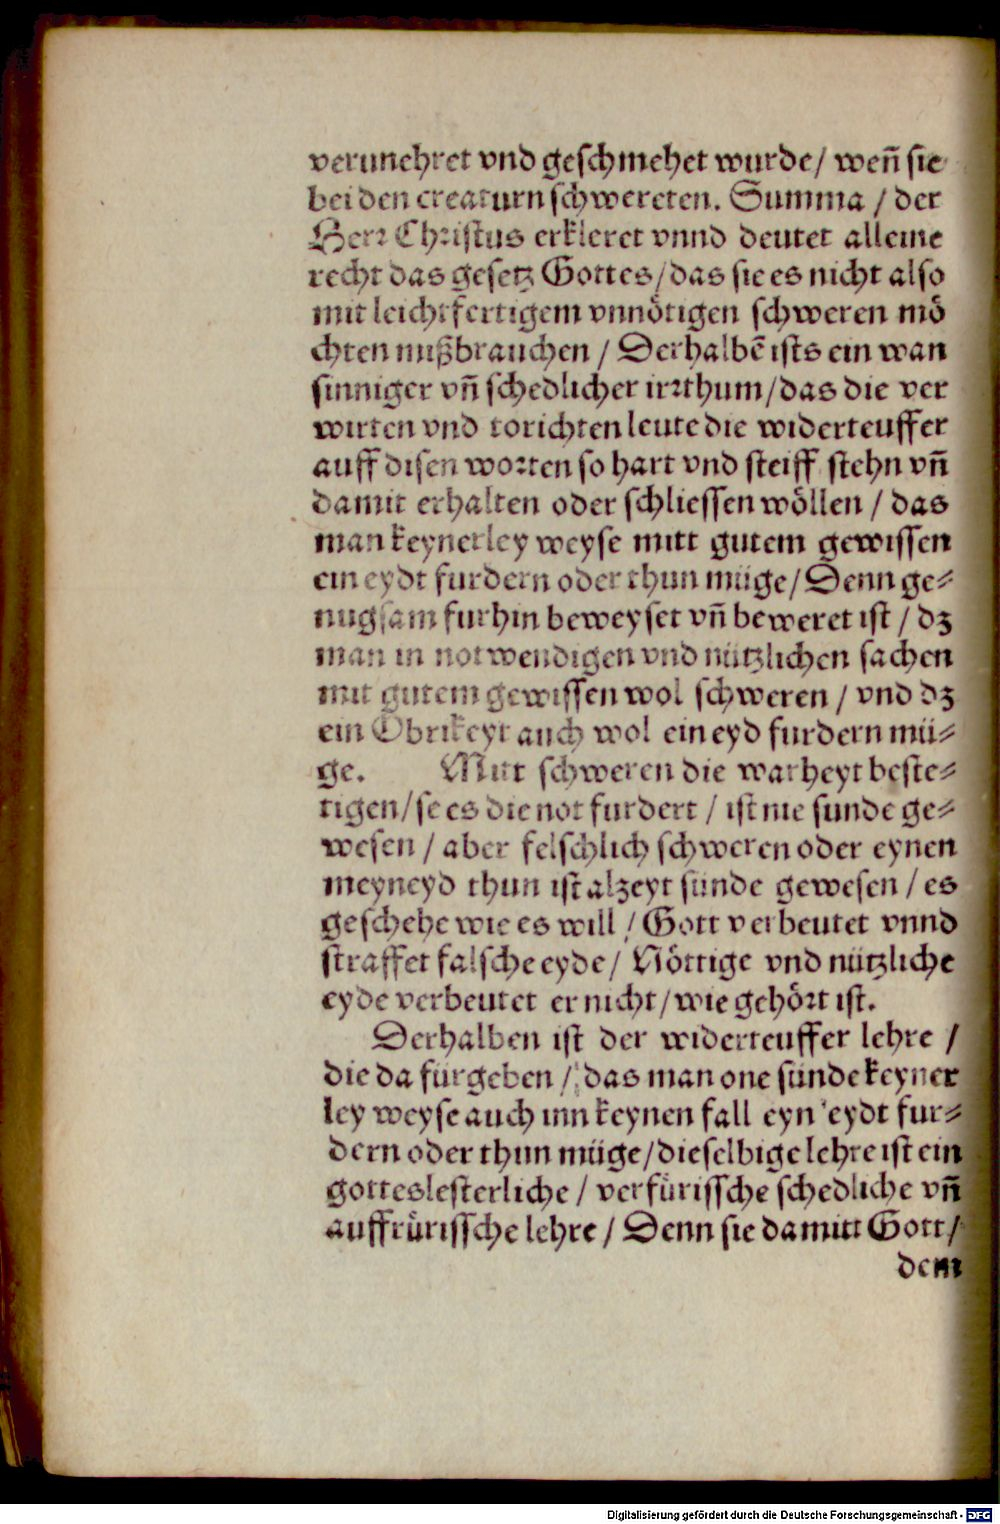 verunehret vnd geschmehet wurde/ weñ sie
bei den creaturn schwereten. Summa / der
Herr Christus erkleret vnnd deutet alleine
recht das gesetz Gottes/das sie es nicht also
mit leichtfertigem vnnötigen schweren mö
chten mißbrauchen / Derhalbẽ ists ein wan
sinniger vñ schedlicher irrthum/das die ver
wirten vnd torichten leute die widerteuffer
auff disen worten so hart vnd steiff stehn vñ
damit erhalten oder schliessen wöllen / das
man keynerley weyse mitt gutem gewissen
ein eydt furdern oder thun müge/Denn ge-
nugsam furhin beweyset vñ beweret ist / dz
man in notwendigen vnd nützlichen sachen
mit gutem gewissen wol schweren / vnd dz
ein Obrikeyt auch wol ein eyd furdern mü-
ge. Mitt schweren die warheyt beste-
tigen/se es die not furdert / ist nie sunde ge-
wesen / aber felschlich schweren oder eynen
meyneyd thun ist alzeyt sunde gewesen / es
geschehe wie es will / Gott verbeutet vnnd
straffet falsche eyde/ Nöttige vnd nützliche
eyde verbeutet er nicht/wie gehört ist.
Derhalben ist der widerteuffer lehre /
die da fürgeben / das man one sünde keyner
ley weyse auch inn keynen fall eyn eydt fur-
dern oder thun müge/dieselbige lehre ist ein
gotteslesterliche / verfürissche schedliche vñ
auffrürissche lehre / Denn sie damitt Gott/
dem
Digitalisierung gefördert durch die Deutsche Forschungsgemeinschaft - DFG